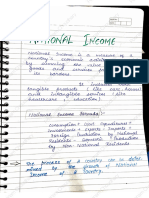 NATIONAL INCOME
National Income is a measure of a
country's economic
by the value of
goods and services
its borders
tangible products (like cars,
and intangible services (like
healthcare, education)
National Income Formula:-
Consumption + Govt. Expenditure +
Investments + Exports - Imports +
Foreign Production by National
Residents - Domestic Production
by Non-National Residents
The process of a country can be deter-
mined by the growth of National
Income of a Country.